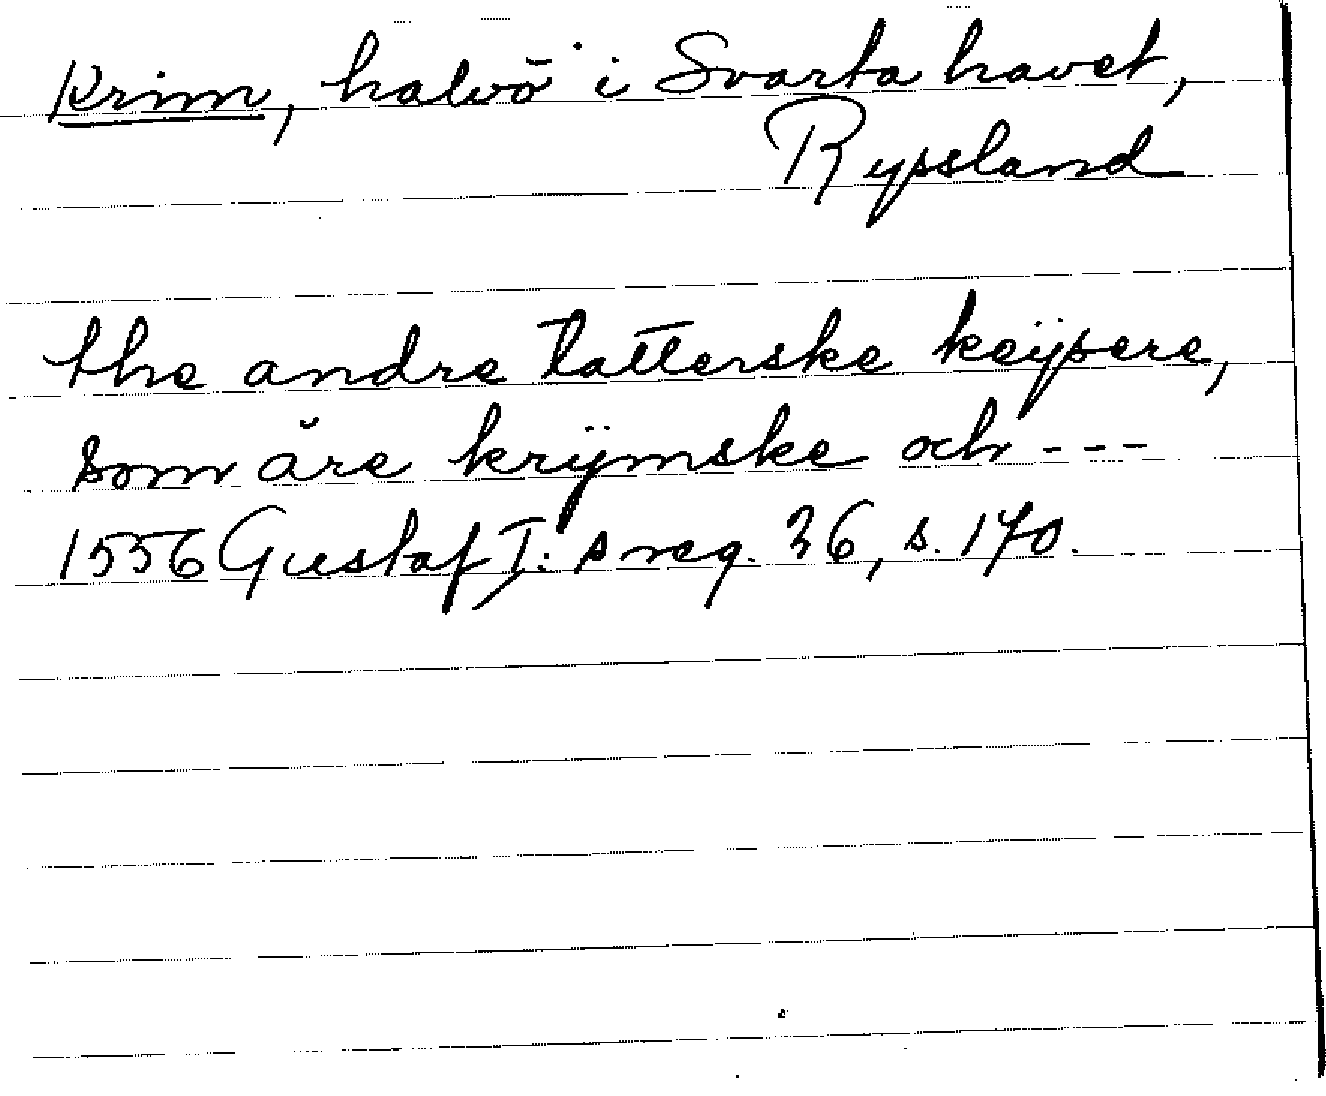 Krim, halvö i Svarta havet,
Ryssland
the andre Tatterske keÿsere,
som äre krÿmske och ---
1556 Gustaf I:s reg. 26, s. 170.